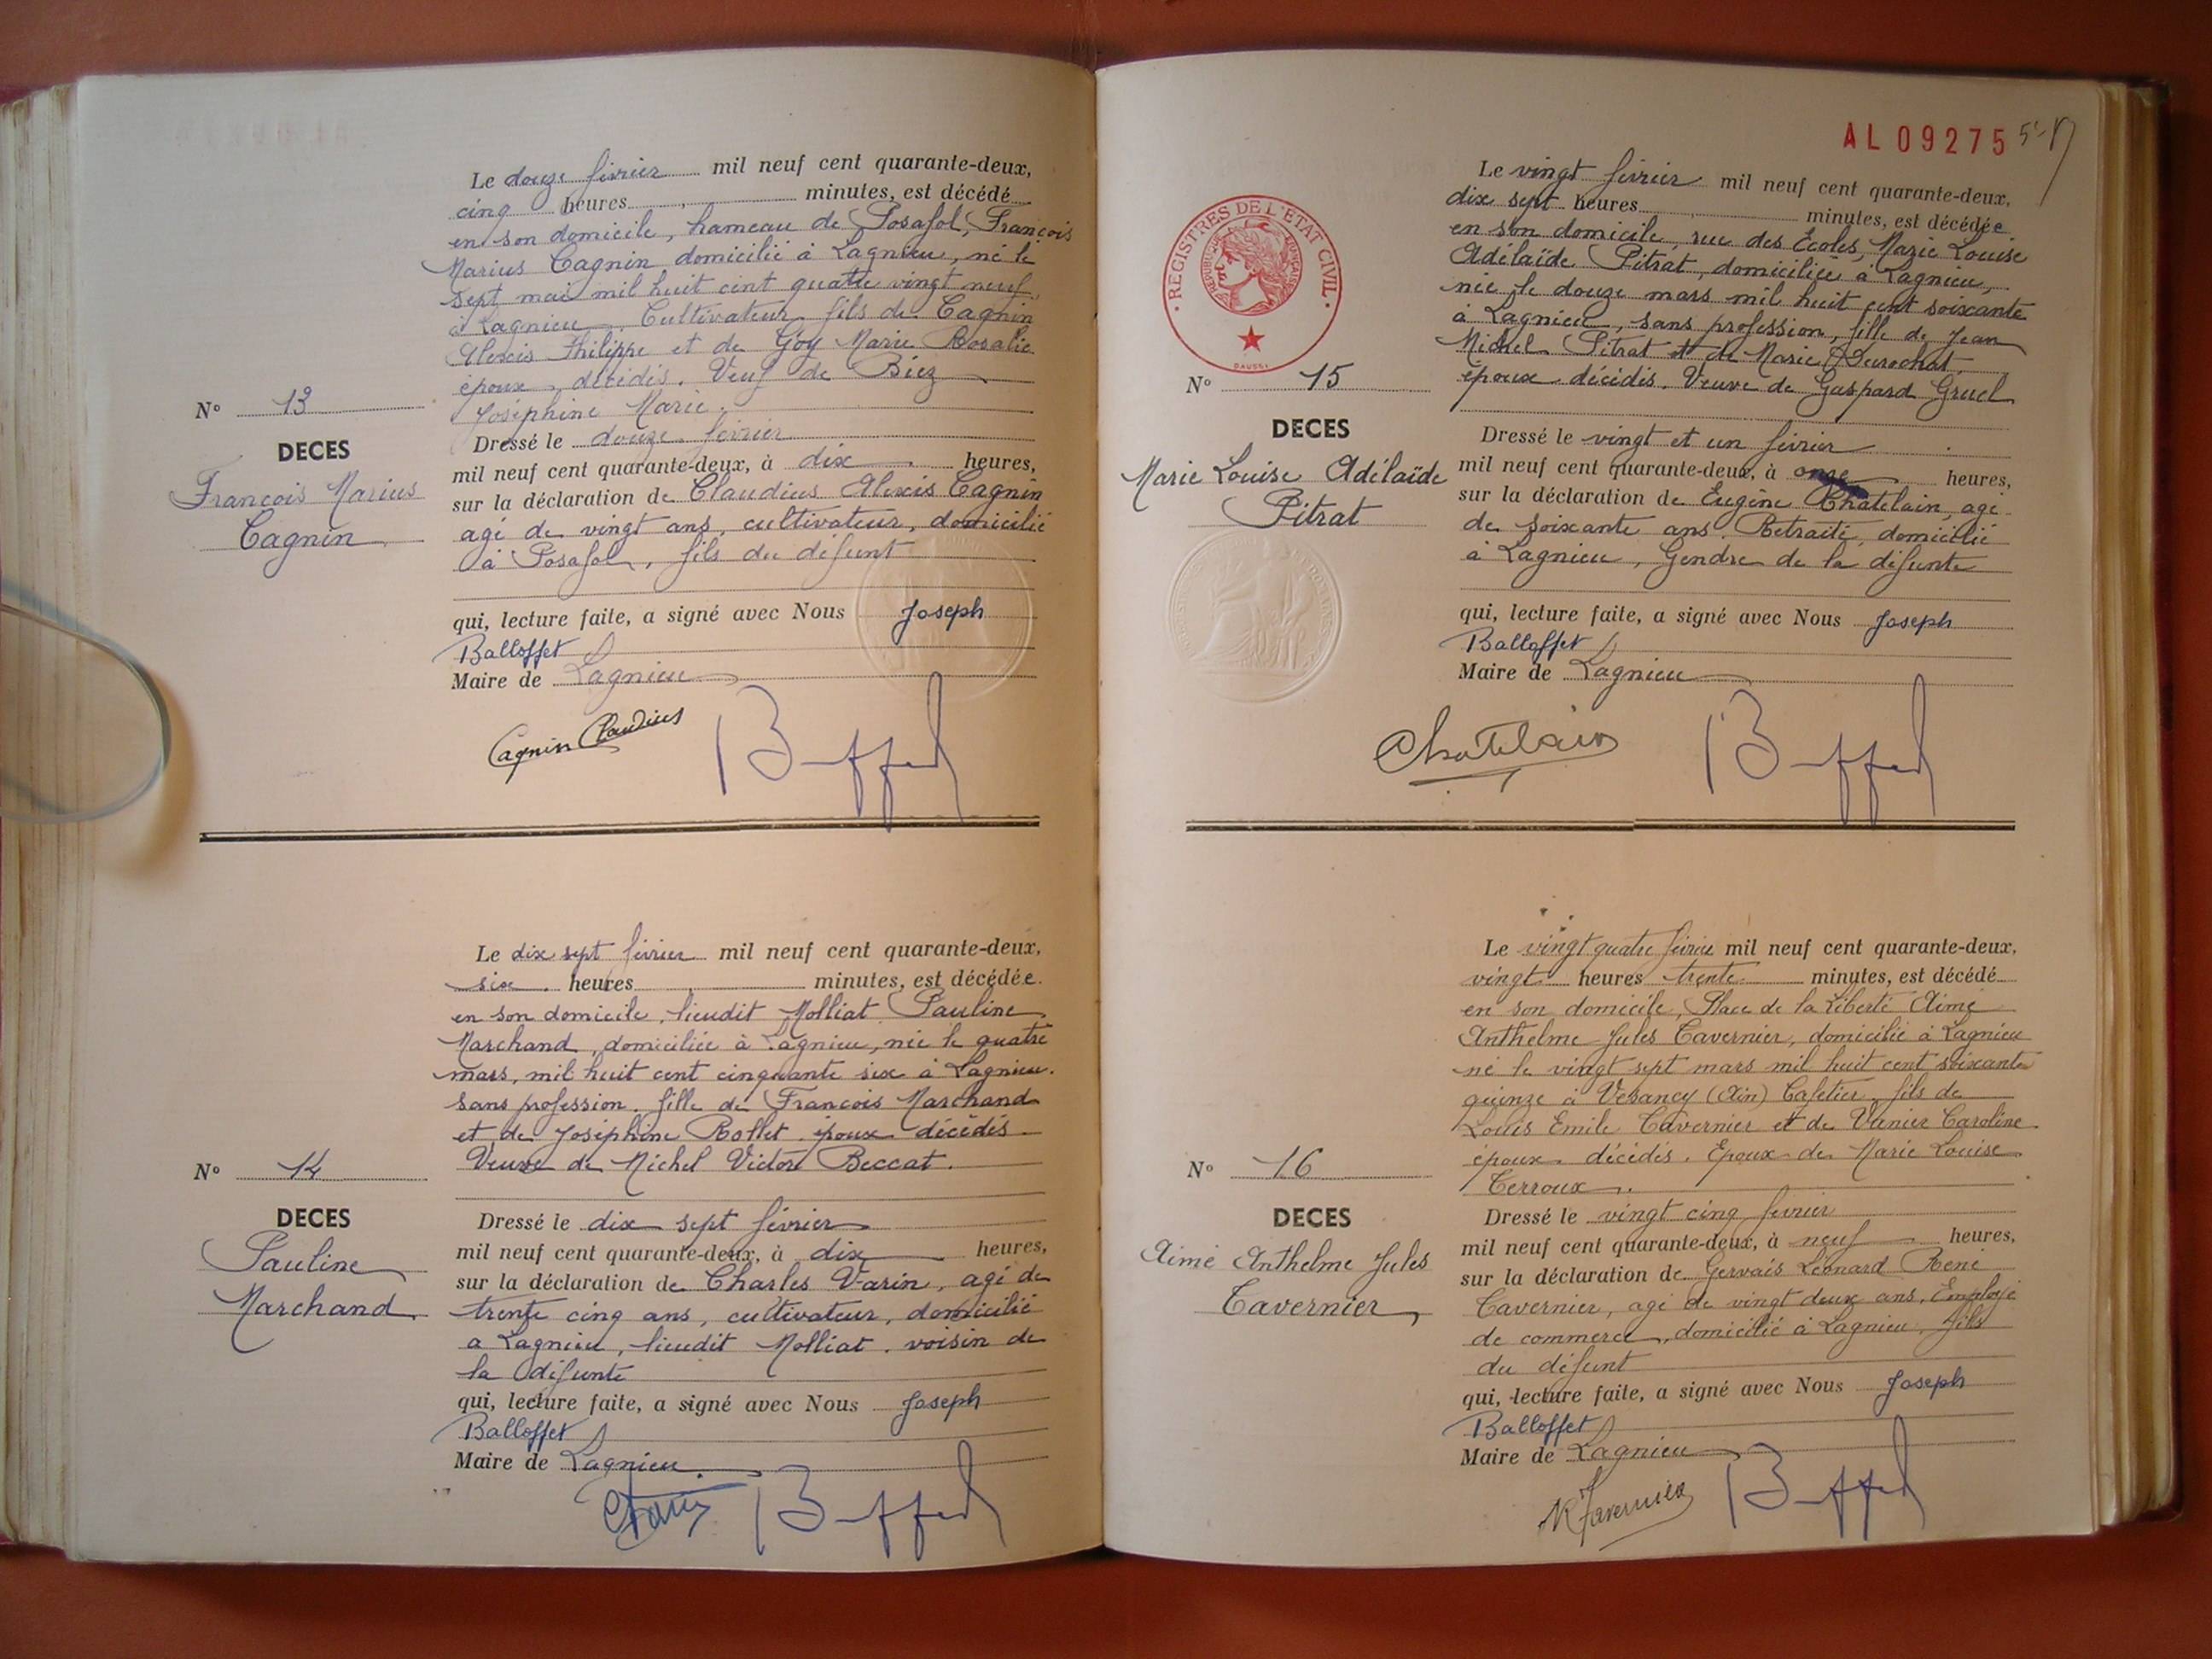 Le douze février mil neuf cent quarante-deux,
cinq heures minutes, est décédé
en son domicile, hameau de Posafol, François
Marius Cagnin domicilié à Lagnieu, né le
sept mai mil huit cent quatre vingt neuf
à Lagnieu. Cultivateur, fils de Cagnin
Alexis Philippe et de Goy Marie Rosalie
époux décédés. Veuf de Biez
Joséphine Marie.
Nº 13
DECES
François Marius
Cagnin
Dressé le douze février
mil neuf cent quarante-deux, à dix heures,
sur la déclaration de Claudius Alexis Cagnin
agé de vingt ans, cultivateur, domicilié
à Posafol, fils du défunt
qui, lecture faite, a signé avec Nous Joseph
Balloffet
Maire de Lagnieu
Cagnin Claudius
Le dix sept février mil neuf cent quarante-deux,
six heures minutes, est décédée
en son domicile, lieudit Molliat Pauline
Marchand, domiciliée à Lagnieu, née le quatre
mars, mil huit cent cinquante six à Lagnieu.
sans profession. fille de François Marchand
et de Joséphine Rollet époux décédés
Veuve de Michel Victor Beccat.
Nº 14
DECES
Pauline
Marchand
Dressé le dix sept février
mil neuf cent quarante-deux, à dix heures,
sur la déclaration de Charles Varin, agé de
trente cinq ans, cultivateur, domicilié
a Lagnieu, lieudit Molliat. voisin de
la défunte
qui, lecture faite, a signé avec Nous Joseph
Balloffet
Maire de Lagnieu.
AL 09275
REGISTRES DE L'ETAT CIVIL
REPUBLIQUE FRANÇAISE
Le vingt février mil neuf cent quarante-deux,
dix sept heures minutes, est décédée
en son domicile, rue des Ecoles, Marie Louise
Adélaïde Pitrat, domiciliée à Lagnieu,
née le douze mars mil huit cent soixante
à Lagnieu, sans profession, fille de Jean
Michel Pitrat et de Marie Durochat,
époux décédés. Veuve de Gaspard Gruel
Nº 15
DECES
Marie Louise Adélaïde
Pitrat
Dressé le vingt et un février
mil neuf cent quarante-deux, à onze heures,
sur la déclaration de Eugène Chatelain, agé
de soixante ans, Retraité, domicilié
à Lagnieu, Gendre de la défunte
qui, lecture faite, a signé avec Nous Joseph
Balloffet
Maire de Lagnieu
Chatelain
Le vingt quatre février mil neuf cent quarante-deux,
vingt heures trente minutes, est décédé
en son domicile, Place de la Liberté Aimé
Anthelme Jules Tavernier, domicilié à Lagnieu
né le vingt sept mars mil huit cent soixante
quinze à Vesancy (Ain) Cafetier, fils de
Louis Emile Tavernier et de Vernier Caroline
époux décédés. Epoux de Marie Louise
Terroux.
Nº 16
DECES
Aimé Anthelme Jules
Tavernier
Dressé le vingt cinq février
mil neuf cent quarante-deux, à neuf heures,
sur la déclaration de Gervais Léonard René
Tavernier, agé de vingt deux ans, Employé
de commerce, domicilié à Lagnieu, fils
du défunt
qui, lecture faite, a signé avec Nous Joseph
Balloffet
Maire de Lagnieu
R Tavernier